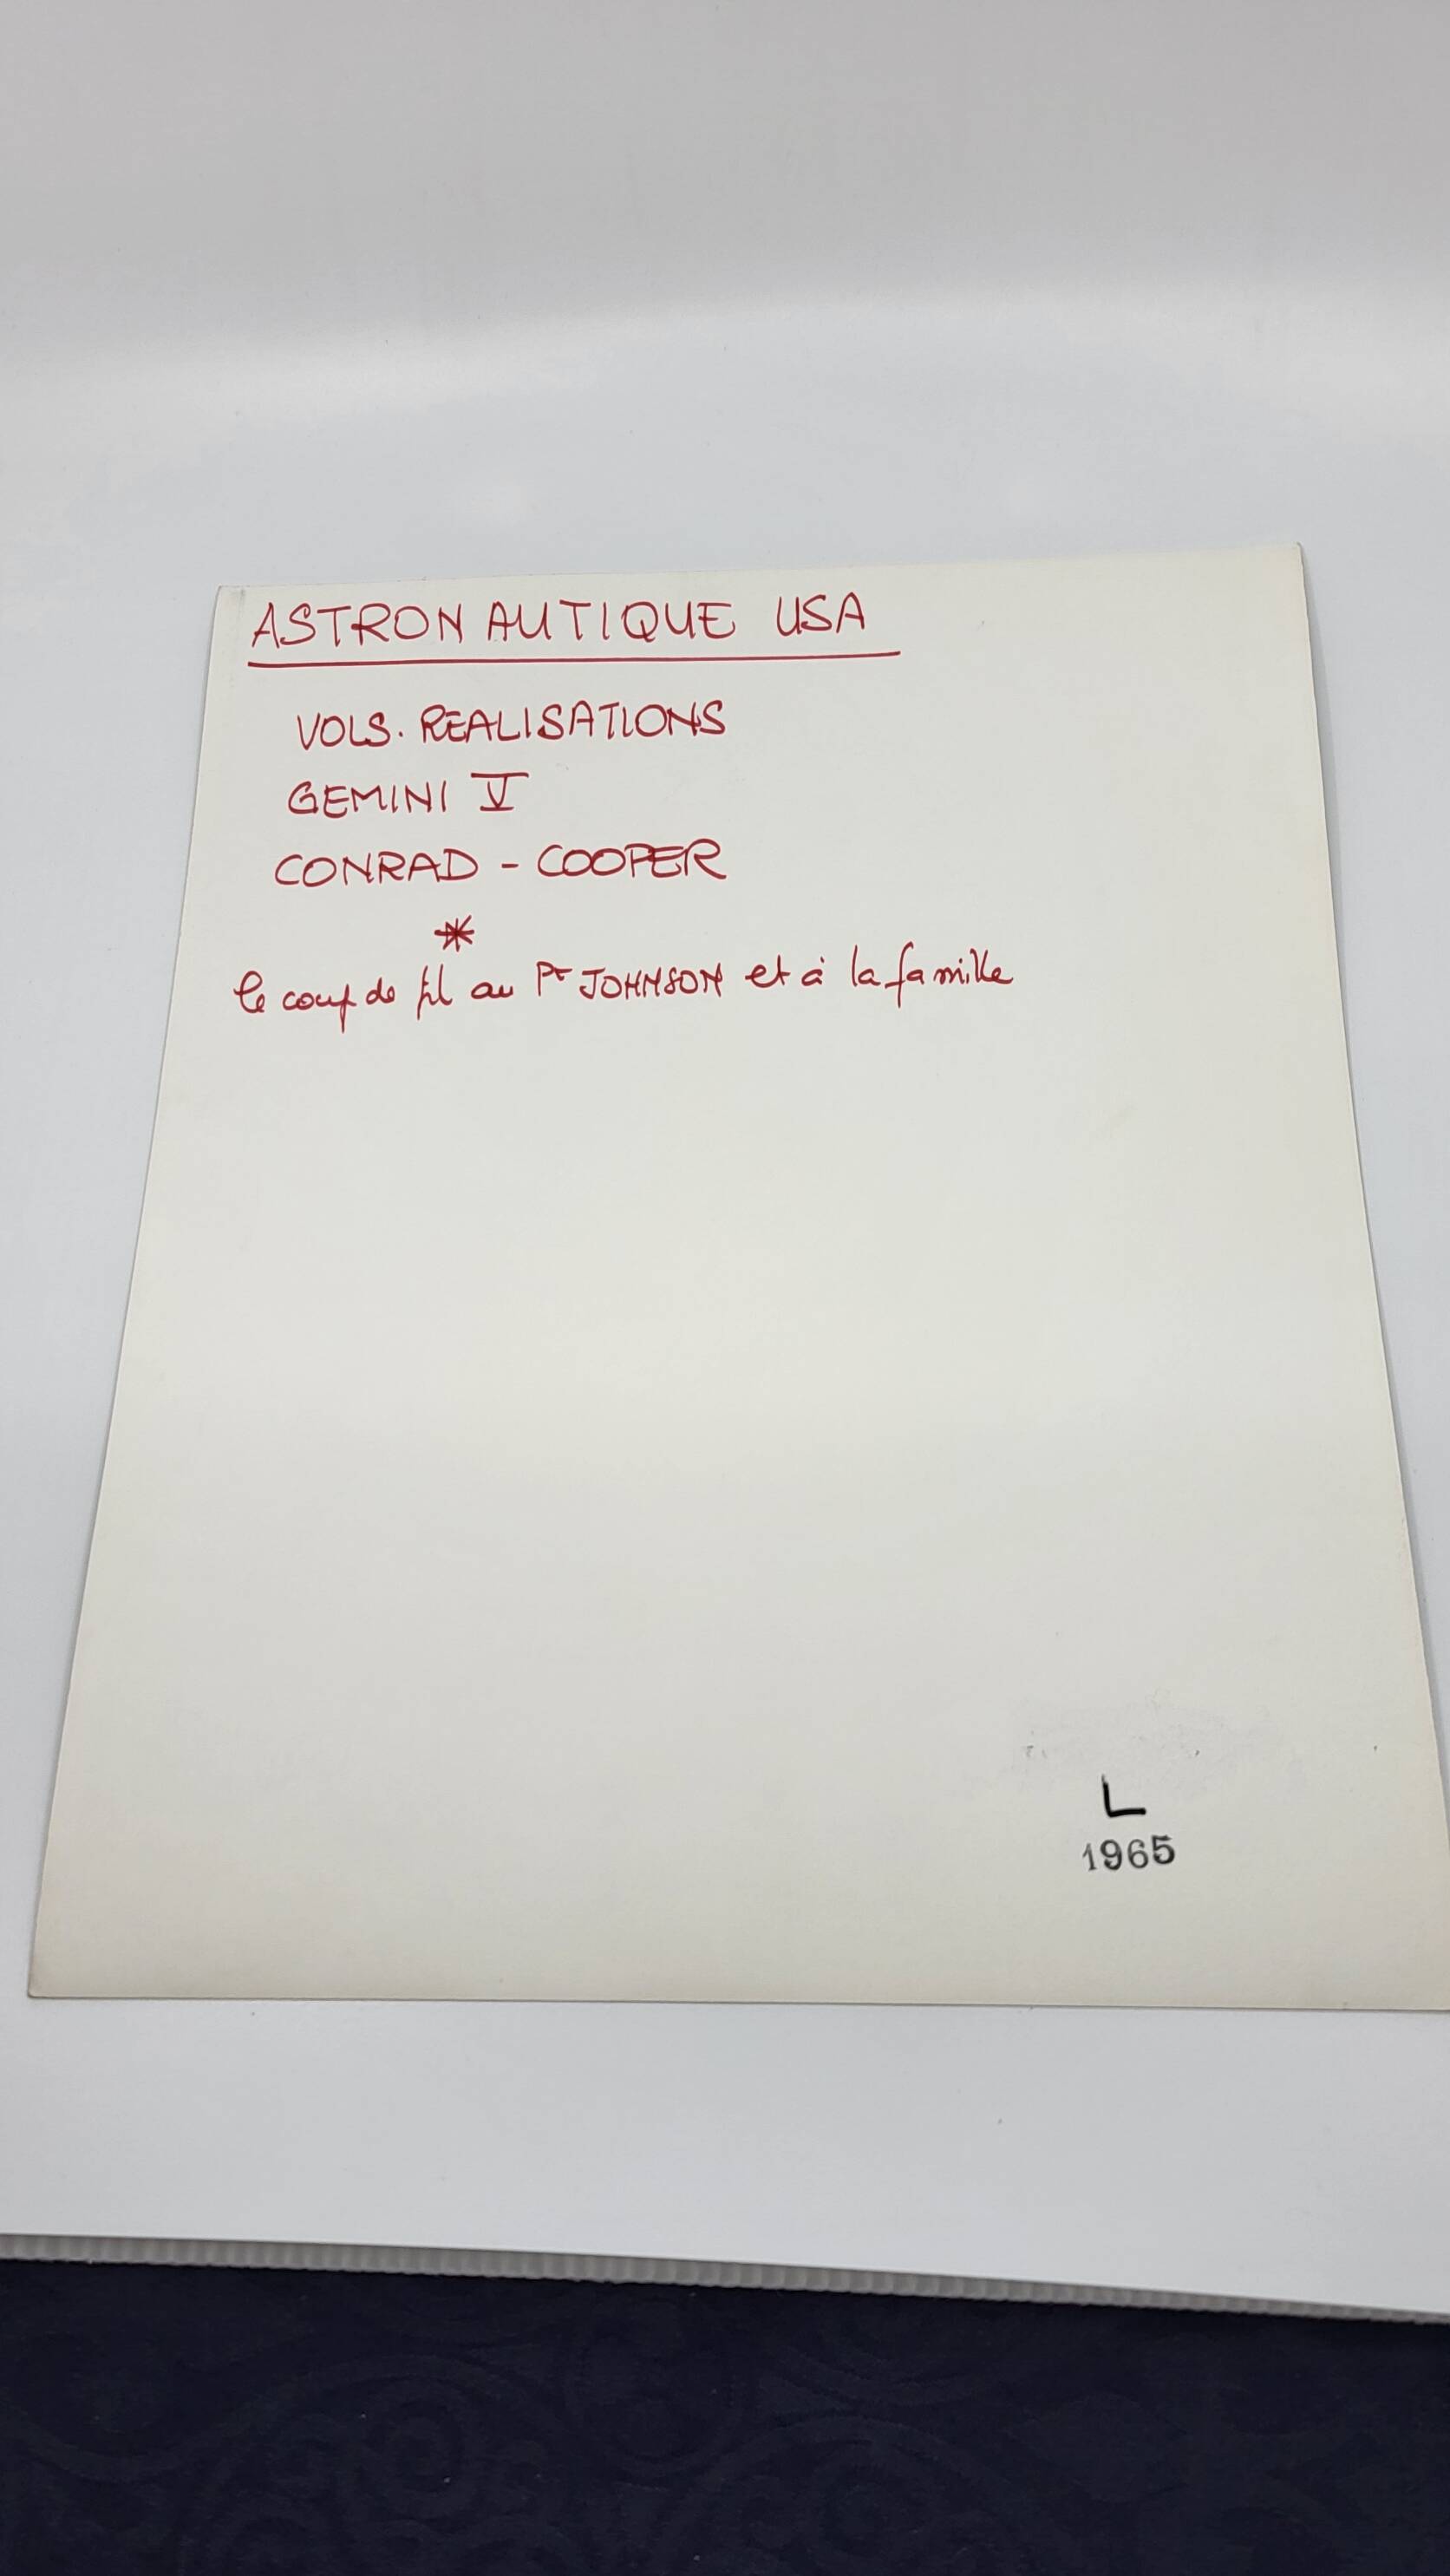 ASTRONAUTIQUE USA
VOLS. REALISATIONS
GEMINI V
CONRAD - COOPER
*
le coup de fil au Pt JOHNSON et à la famille
L
1965